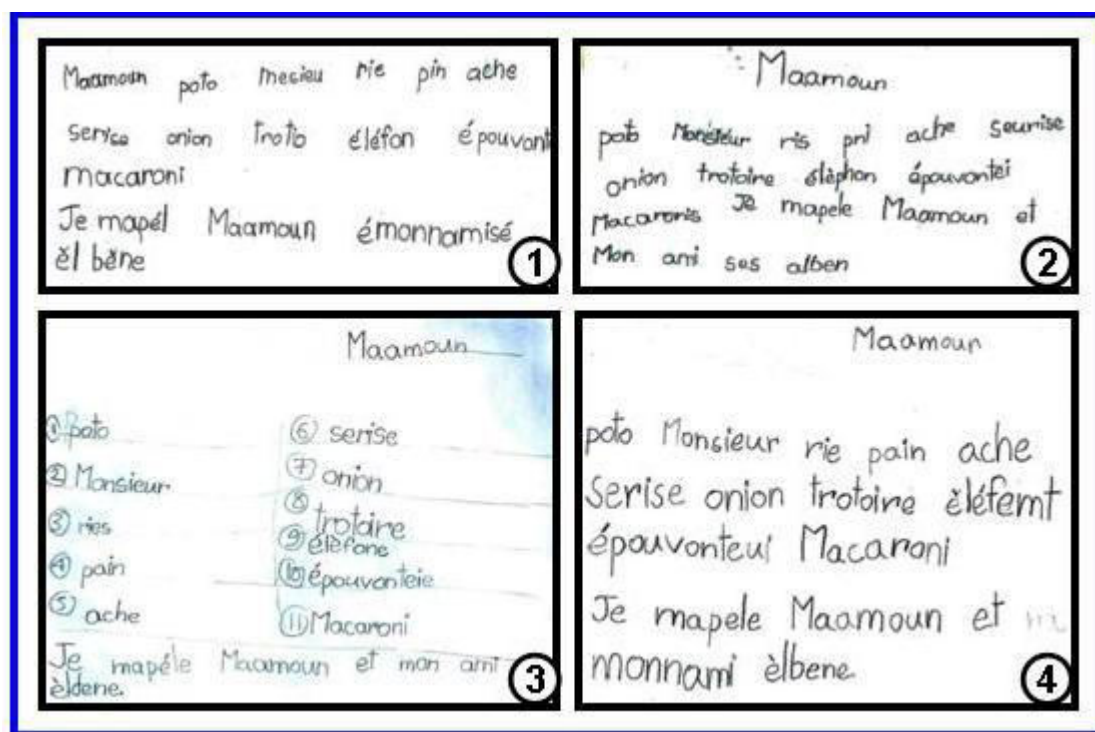 Maamoun poto mesieu rie pin ache
serise onion trotio éléfon épouvont
macaroni
Je mapél Maamoun émonnamisé
ĕl bĕne
1
Maamoun
poto Monsieur ris pni ache seurise
onion trotoire élèphon épouvontei
Macaronis Je mapele Maamoun et
Mon ami ses alben
2
Maamoun
① poto
② Monsieur
③ ries
④ pain
⑤ ache
⑥ serise
⑦ onion
⑧ trotoire
⑨ éléfone
⑩ épouvonteie
⑪ Macaroni
Je mapéle Maamoun et mon ami
èldene.
3
Maamoun
poto Monsieur rie pain ache
serise onion trotoire ĕléfemt
épouvonteui Macaroni
Je mapele Maamoun et
monnami èlbene.
4